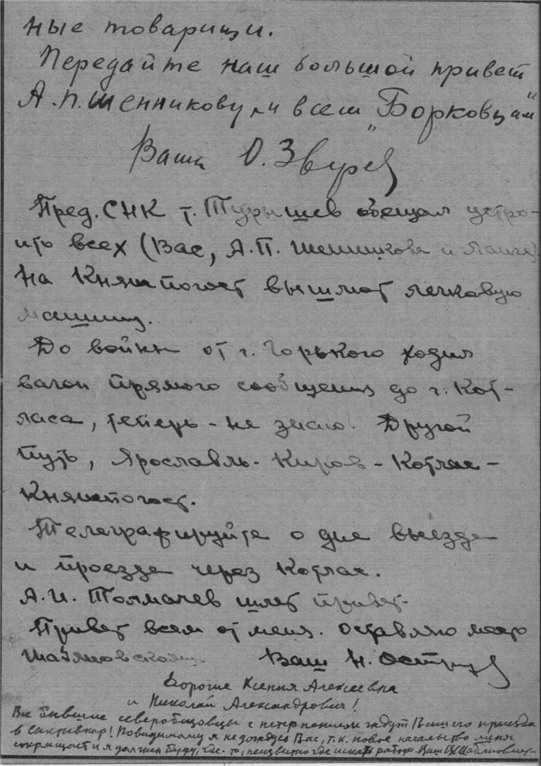 ные товарищи.
Передайте наш большой привет
А.П. Шенникову и всем "Борковцам"
Ваши О. Зверев
Пред. СНК т. Турышев обещал устро-
ить всех (Вас, А.П. Шенникова и
На Княжпогост вышлют легковую
машину.
До войны от г. Горького ходил
вагон прямого сообщения до г. Кот-
ласа, теперь - не знаю. Другой
путь, Ярославль - Киров - Котлас -
Княжпогост.
Телеграфируйте о дне выезда
и проезде через Котлас.
А.И. Толмачев шлет привет.
Привет всем от меня. Оставляю место
Шабликовской. Ваш Н.
Дорогие Ксения Алексеевна
и Николай Александрович!
Все бывшие северобазовцы с нетерпением ждут Вашего приезда
в Сыктывкар! Повидимому я не дождусь Вас, т.к. новое начальство меня
сокращает и я должен буду, где-то, неизвестно где искать работу. Ваш